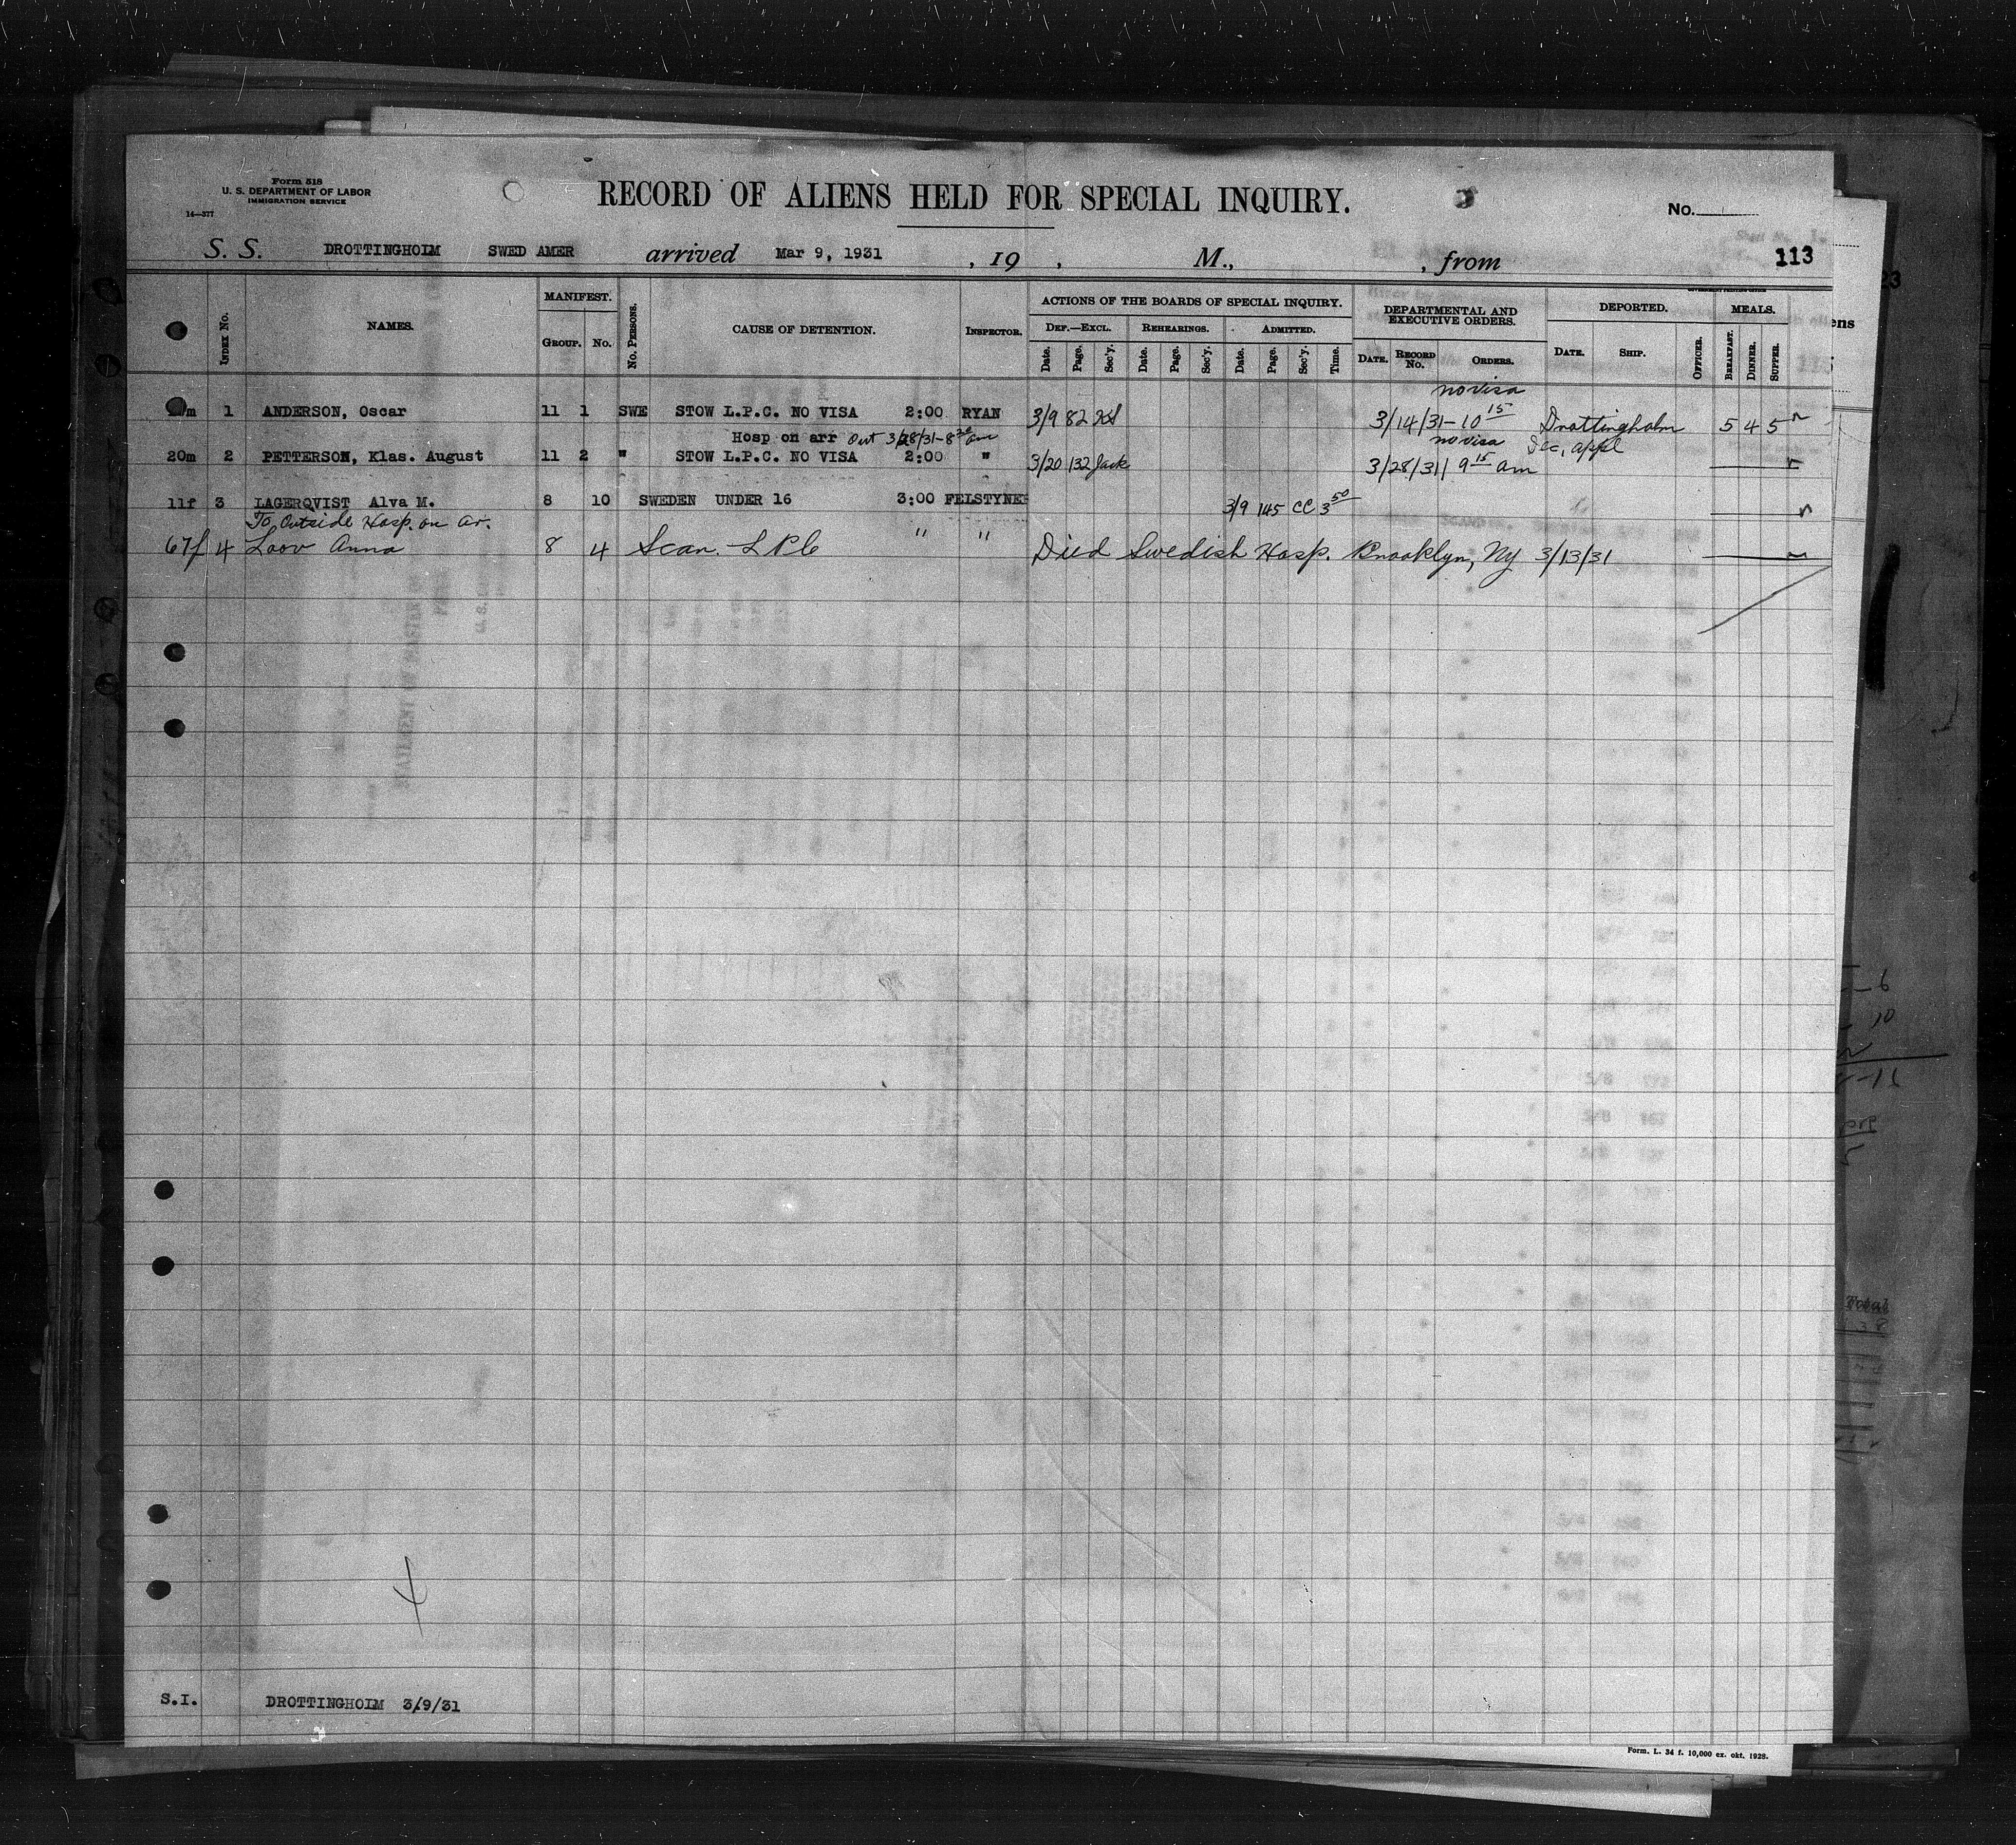 Form 518
U. S. DEPARTMENT OF LABOR
IMMIGRATION SERVICE
14—577
RECORD OF ALIENS HELD FOR SPECIAL INQUIRY.
No.
S. S. DROTTINGHOLM SWED AMER arrived Mar 9, 1931 , 19 , M., , from 113
INDEX No. NAMES. MANIFEST. GROUP. No. No. PERSONS. CAUSE OF DETENTION. INSPECTOR. ACTIONS OF THE BOARDS OF SPECIAL INQUIRY. DEF.—EXCL. Date. Page. Sec'y. REHEARINGS. Date. Page. Sec'y. ADMITTED. Date. Page. Sec'y. Time. DEPARTMENTAL AND EXECUTIVE ORDERS. DATE. RECORD No. ORDERS. DEPORTED. DATE. SHIP. OFFICER. MEALS. BREAKFAST. DINNER. SUPPER.
no visa
m 1 ANDERSON, Oscar 11 1 SWE STOW L.P.C. NO VISA 2:00 RYAN 3/9 82 3/14/31-10 15 Drottingholm 5 4 5
Hosp on arr Out 3/28/31-8 30 am no visa Dec, appl
20m 2 PETTERSON, Klas. August 11 2 " STOW L.P.C. NO VISA 2:00 " 3/20 132 Jack 3/28/31 9 15 am
11f 3 LAGERQVIST Alva M. 8 10 SWEDEN UNDER 16 3:00 FELSTYNER 3/9 145 CC 3 50
To Outside Hosp. on ar.
67f 4 Loov Anna 8 4 Scan. LPC " " Died Swedish Hosp. Brooklyn, Ny 3/13/31
4
S.I. DROTTINGHOLM 3/9/31
Form. L. 34 f. 10,000 ex. okt. 1928.
Total